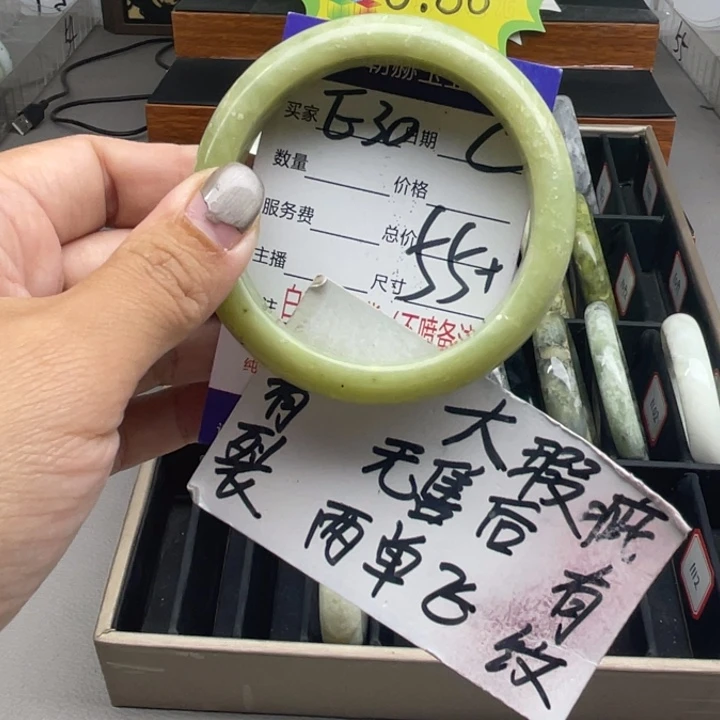 买家 E30 日期
数量 价格
服务费 总价
主播 尺寸 55+
(不喷备注
纯
有裂
大瑕疵
无售后
两单飞
有纹
112